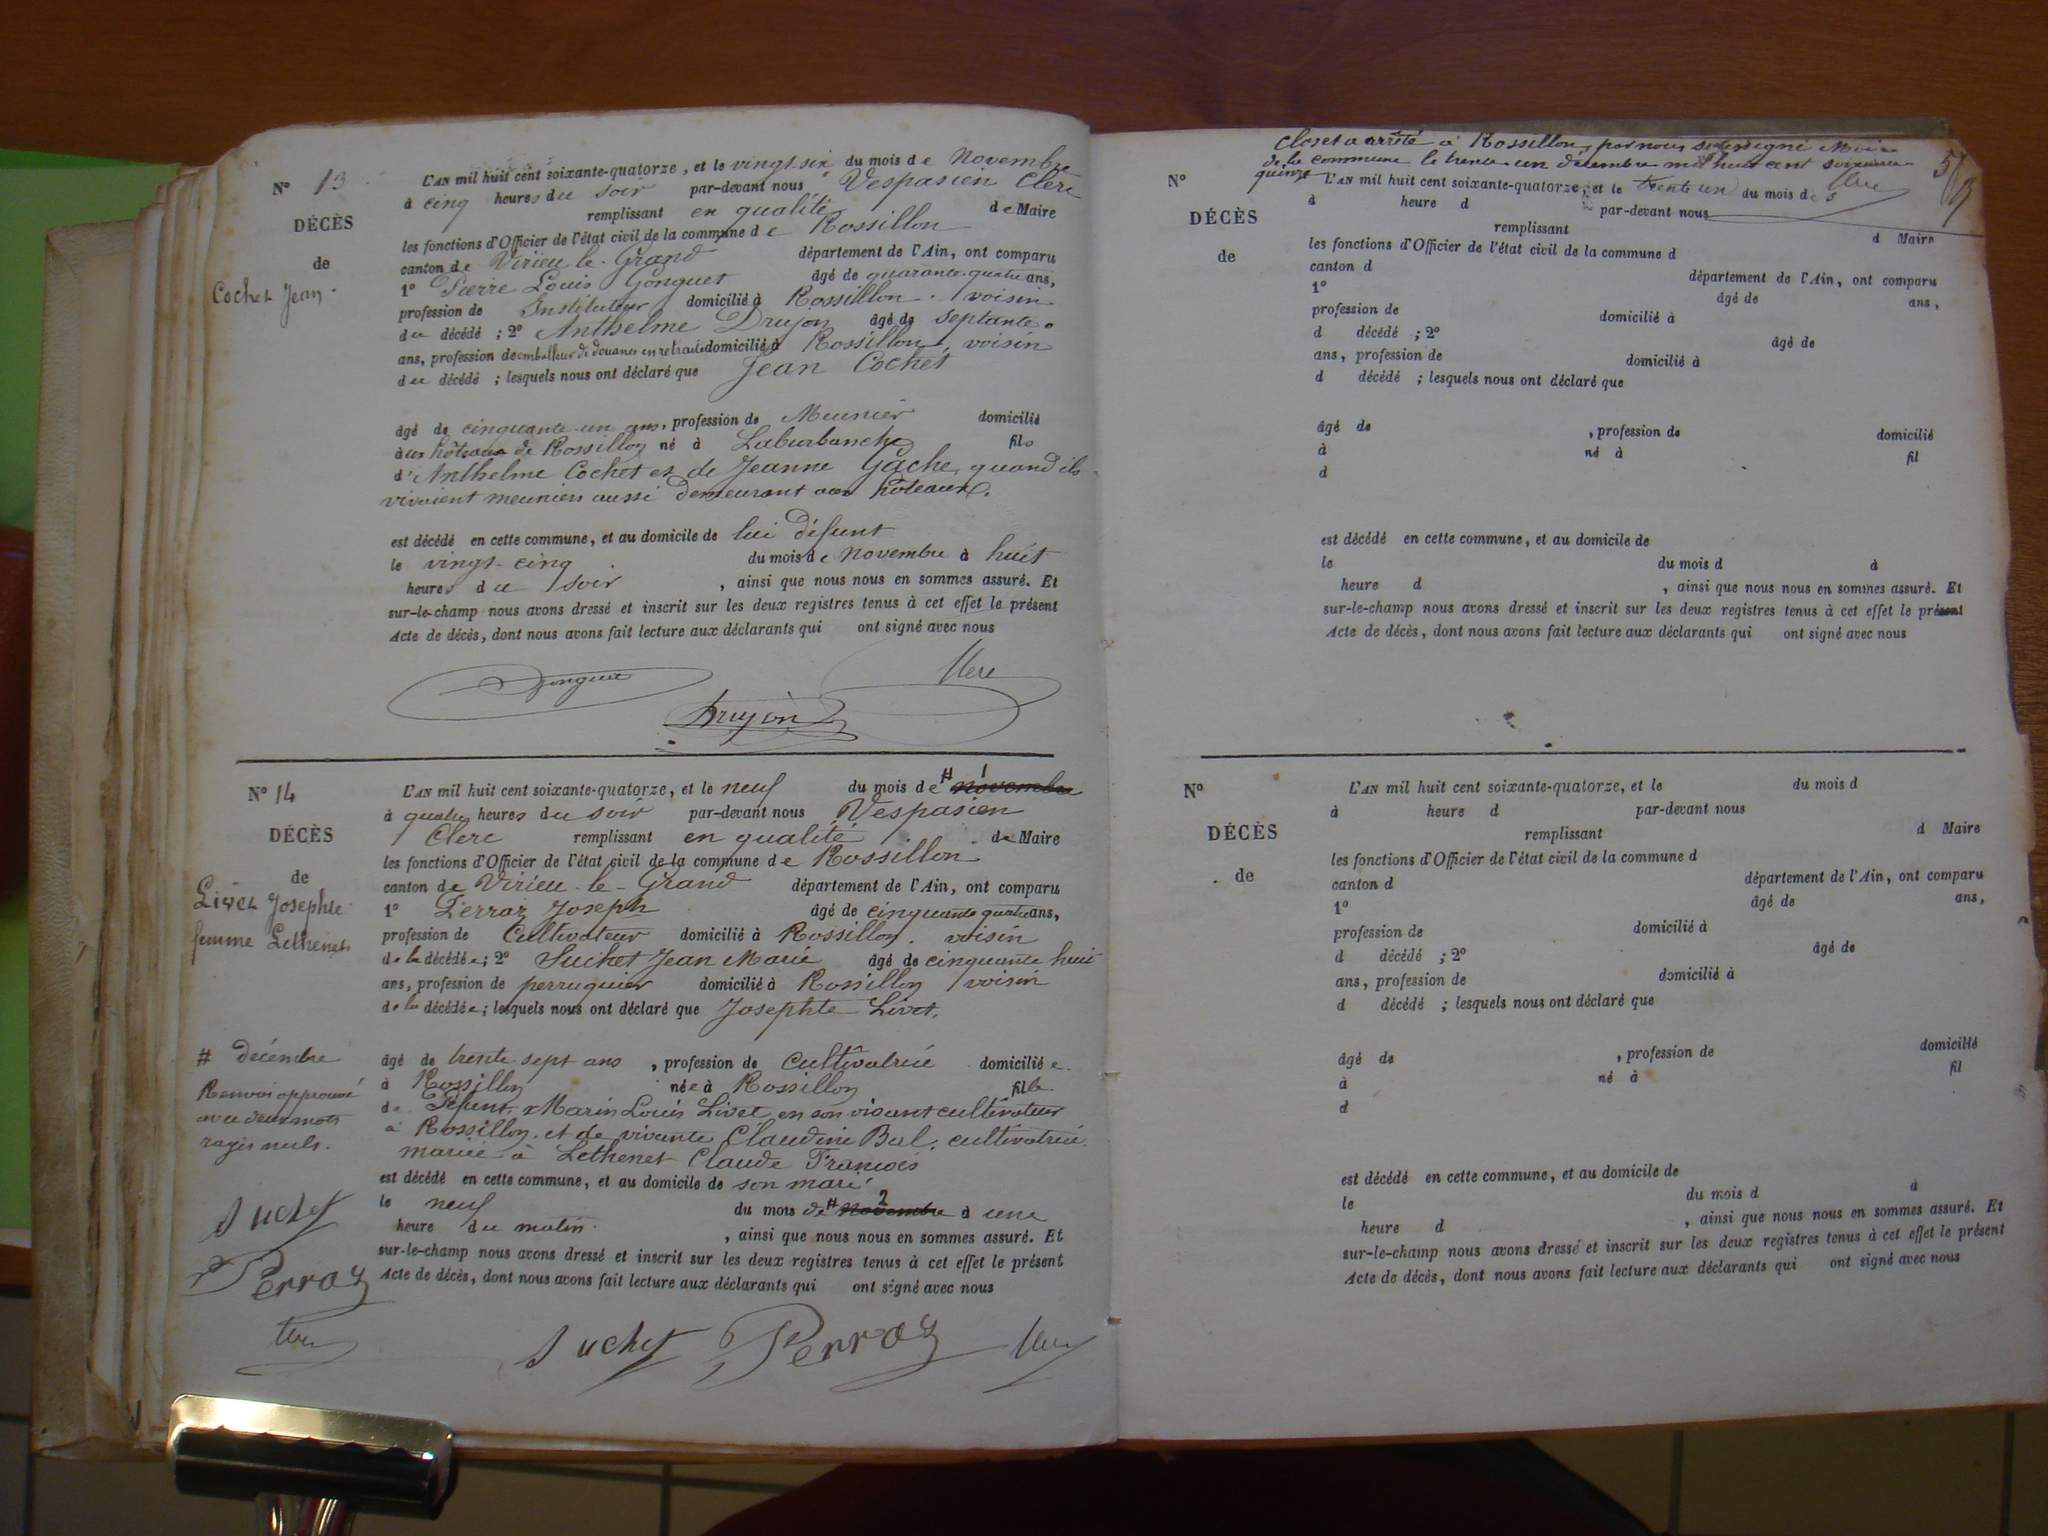 N° 13
DÉCÈS
de
Cochet Jean
L'AN mil huit cent soixante-quatorze, et le vingt-six du mois de Novembre
à cinq heures du soir par-devant nous Vespasien Clerc
remplissant en qualité de Maire
les fonctions d'Officier de l'état civil de la commune de Rossillon
canton de Virieu-le-Grand département de l'Ain, ont comparu
1° Pierre Louis Gonguet âgé de quarante-quatre ans,
profession de Instituteur domicilié à Rossillon. voisin
du décédé ; 2° Anthelme Drujon âgé de septante
ans, profession de emballeur de douanes en retraite domicilié à Rossillon, voisin
du décédé ; lesquels nous ont déclaré que Jean Cochet
âgé de cinquante-un ans, profession de Meunier domicilié
aux hôteaux de Rossillon né à Laburbanche fils
d'Anthelme Cochet et de Jeanne Gache, quand ils
vivaient meuniers aussi demeurant aux hôteaux.
est décédé en cette commune, et au domicile de lui défunt
le vingt-cinq du mois de novembre à huit
heures du soir , ainsi que nous nous en sommes assuré. Et
sur-le-champ nous avons dressé et inscrit sur les deux registres tenus à cet effet le présent
Acte de décès, dont nous avons fait lecture aux déclarants qui ont signé avec nous
Gonguet Clerc
Drujon
N° 14
DÉCÈS
de
Livet Josephte
femme Lethenet
L'AN mil huit cent soixante-quatorze, et le neuf du mois de # 1 novembre
à quatre heures du soir par-devant nous Vespasien
Clerc remplissant en qualité de Maire
les fonctions d'Officier de l'état civil de la commune de Rossillon
canton de Virieu-le-Grand département de l'Ain, ont comparu
1° Perraz Joseph âgé de cinquante quatre ans,
profession de Cultivateur domicilié à Rossillon. voisin
de la décédée ; 2° Suchet Jean Marie âgé de cinquante huit
ans, profession de perruquier domicilié à Rossillon voisin
de la décédée ; lesquels nous ont déclaré que Josephte Livet,
âgé de trente-sept ans , profession de cultivatrice domiciliée
à Rossillon née à Rossillon fille
de Défunt Marin Louis Livet en son vivant cultivateur
à Rossillon. et de vivante Claudine Bal, cultivatrice.
mariée à Lethenet Claude François
est décédé en cette commune, et au domicile de son mari
le neuf du mois de # 2 novembre à une
heure du matin , ainsi que nous nous en sommes assuré. Et
sur-le-champ nous avons dressé et inscrit sur les deux registres tenus à cet effet le présent
Acte de décès, dont nous avons fait lecture aux déclarants qui ont signé avec nous
# décembre
Renvoi approuvé
avec deux mots
rayés nuls.
Suchet
Perraz
Clerc
Suchet Perraz Clerc
Clos et arrêté à Rossillon, par nous soussigné Maire
de la commune le trente-un décembre mil huit cent soixante-
quinze Clerc
N°
DÉCÈS
de
L'AN mil huit cent soixante-quatorze, et le trente un du mois de
à heure d par-devant nous
remplissant d Maire
les fonctions d'Officier de l'état civil de la commune d
canton d département de l'Ain, ont comparu
1° âgé de ans,
profession de domicilié à
d décédé ; 2° âgé de
ans, profession de domicilié à
d décédé ; lesquels nous ont déclaré que
âgé de , profession de domicilié
à né à fil
d
est décédé en cette commune, et au domicile de
le du mois d à
heure d , ainsi que nous nous en sommes assuré. Et
sur-le-champ nous avons dressé et inscrit sur les deux registres tenus à cet effet le présent
Acte de décès, dont nous avons fait lecture aux déclarants qui ont signé avec nous
N°
DÉCÈS
de
L'AN mil huit cent soixante-quatorze, et le du mois d
à heure d par-devant nous
remplissant d Maire
les fonctions d'Officier de l'état civil de la commune d
canton d département de l'Ain, ont comparu
1° âgé de ans,
profession de domicilié à
d décédé ; 2° âgé de
ans, profession de domicilié à
d décédé ; lesquels nous ont déclaré que
âgé de , profession de domicilié
à né à fil
d
est décédé en cette commune, et au domicile de
le du mois d à
heure d , ainsi que nous nous en sommes assuré. Et
sur-le-champ nous avons dressé et inscrit sur les deux registres tenus à cet effet le présent
Acte de décès, dont nous avons fait lecture aux déclarants qui ont signé avec nous